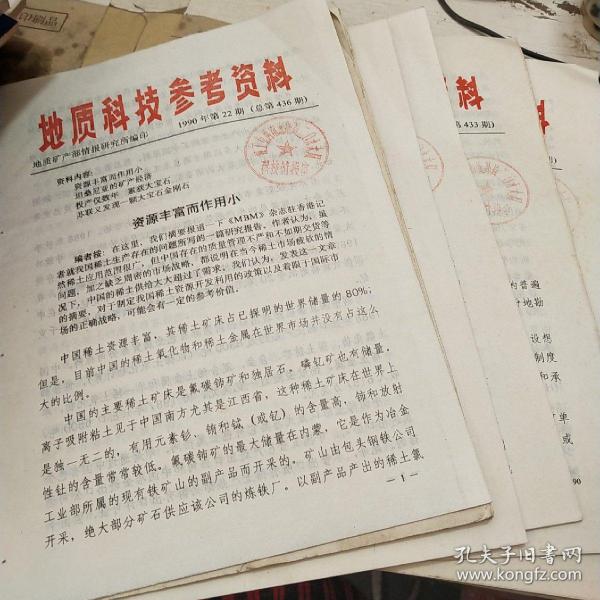 地质科技参考资料
1990年第22期（总第436期）
地质矿产部情报研究所编印
资料内容：
资源丰富而作用小
坦桑尼亚的矿产经济
投产仅数年 累获大宝石
苏联又发现一颗大宝石金刚石
资源丰富而作用小
编者按：在这里，我们摘要报道一下《MBM》杂志驻香港记
者就我国稀土生产存在的问题所写的一篇研究报告。作者认为，虽
然稀土应用范围很广，但中国存在的质量管理不严和不如期交货等
问题，加之缺乏周密的市场战略，都说明在当今稀土市场疲软的情
况下，中国的稀土供给大大超过了需求。我们认为，发表这一文章
的摘要，对于制定我国稀土资源开发利用的政策以及着眼于国际市
场的正确战略，可能会有一定的参考价值。
中国稀土资源丰富，其稀土矿床占已探明的世界储量的80%；
但是，目前中国的稀土氧化物和稀土金属在世界市场并没有占这么
大的比例。
中国的主要稀土矿床是氟碳铈矿和独居石。磷钇矿也有储量。
离子吸附粘土见于中国南方尤其是江西省，这种稀土矿床在世界上
是独一无二的，有用元素钐、铕和铽（或钇）的含量高，铈和放射
性钍的含量常常较低。氟碳铈矿的最大储量在内蒙，它是作为冶金
工业部所属的现有铁矿山的副产品而开采的，矿山由包头钢铁公司
开采，绝大部分矿石供应该公司的炼铁厂。以副产品产出的稀土氯
—1—
科
第433期）
的普遍
地勘
设想
制度
和承
单
或
90
孔夫子旧书网
www.kongfz.com